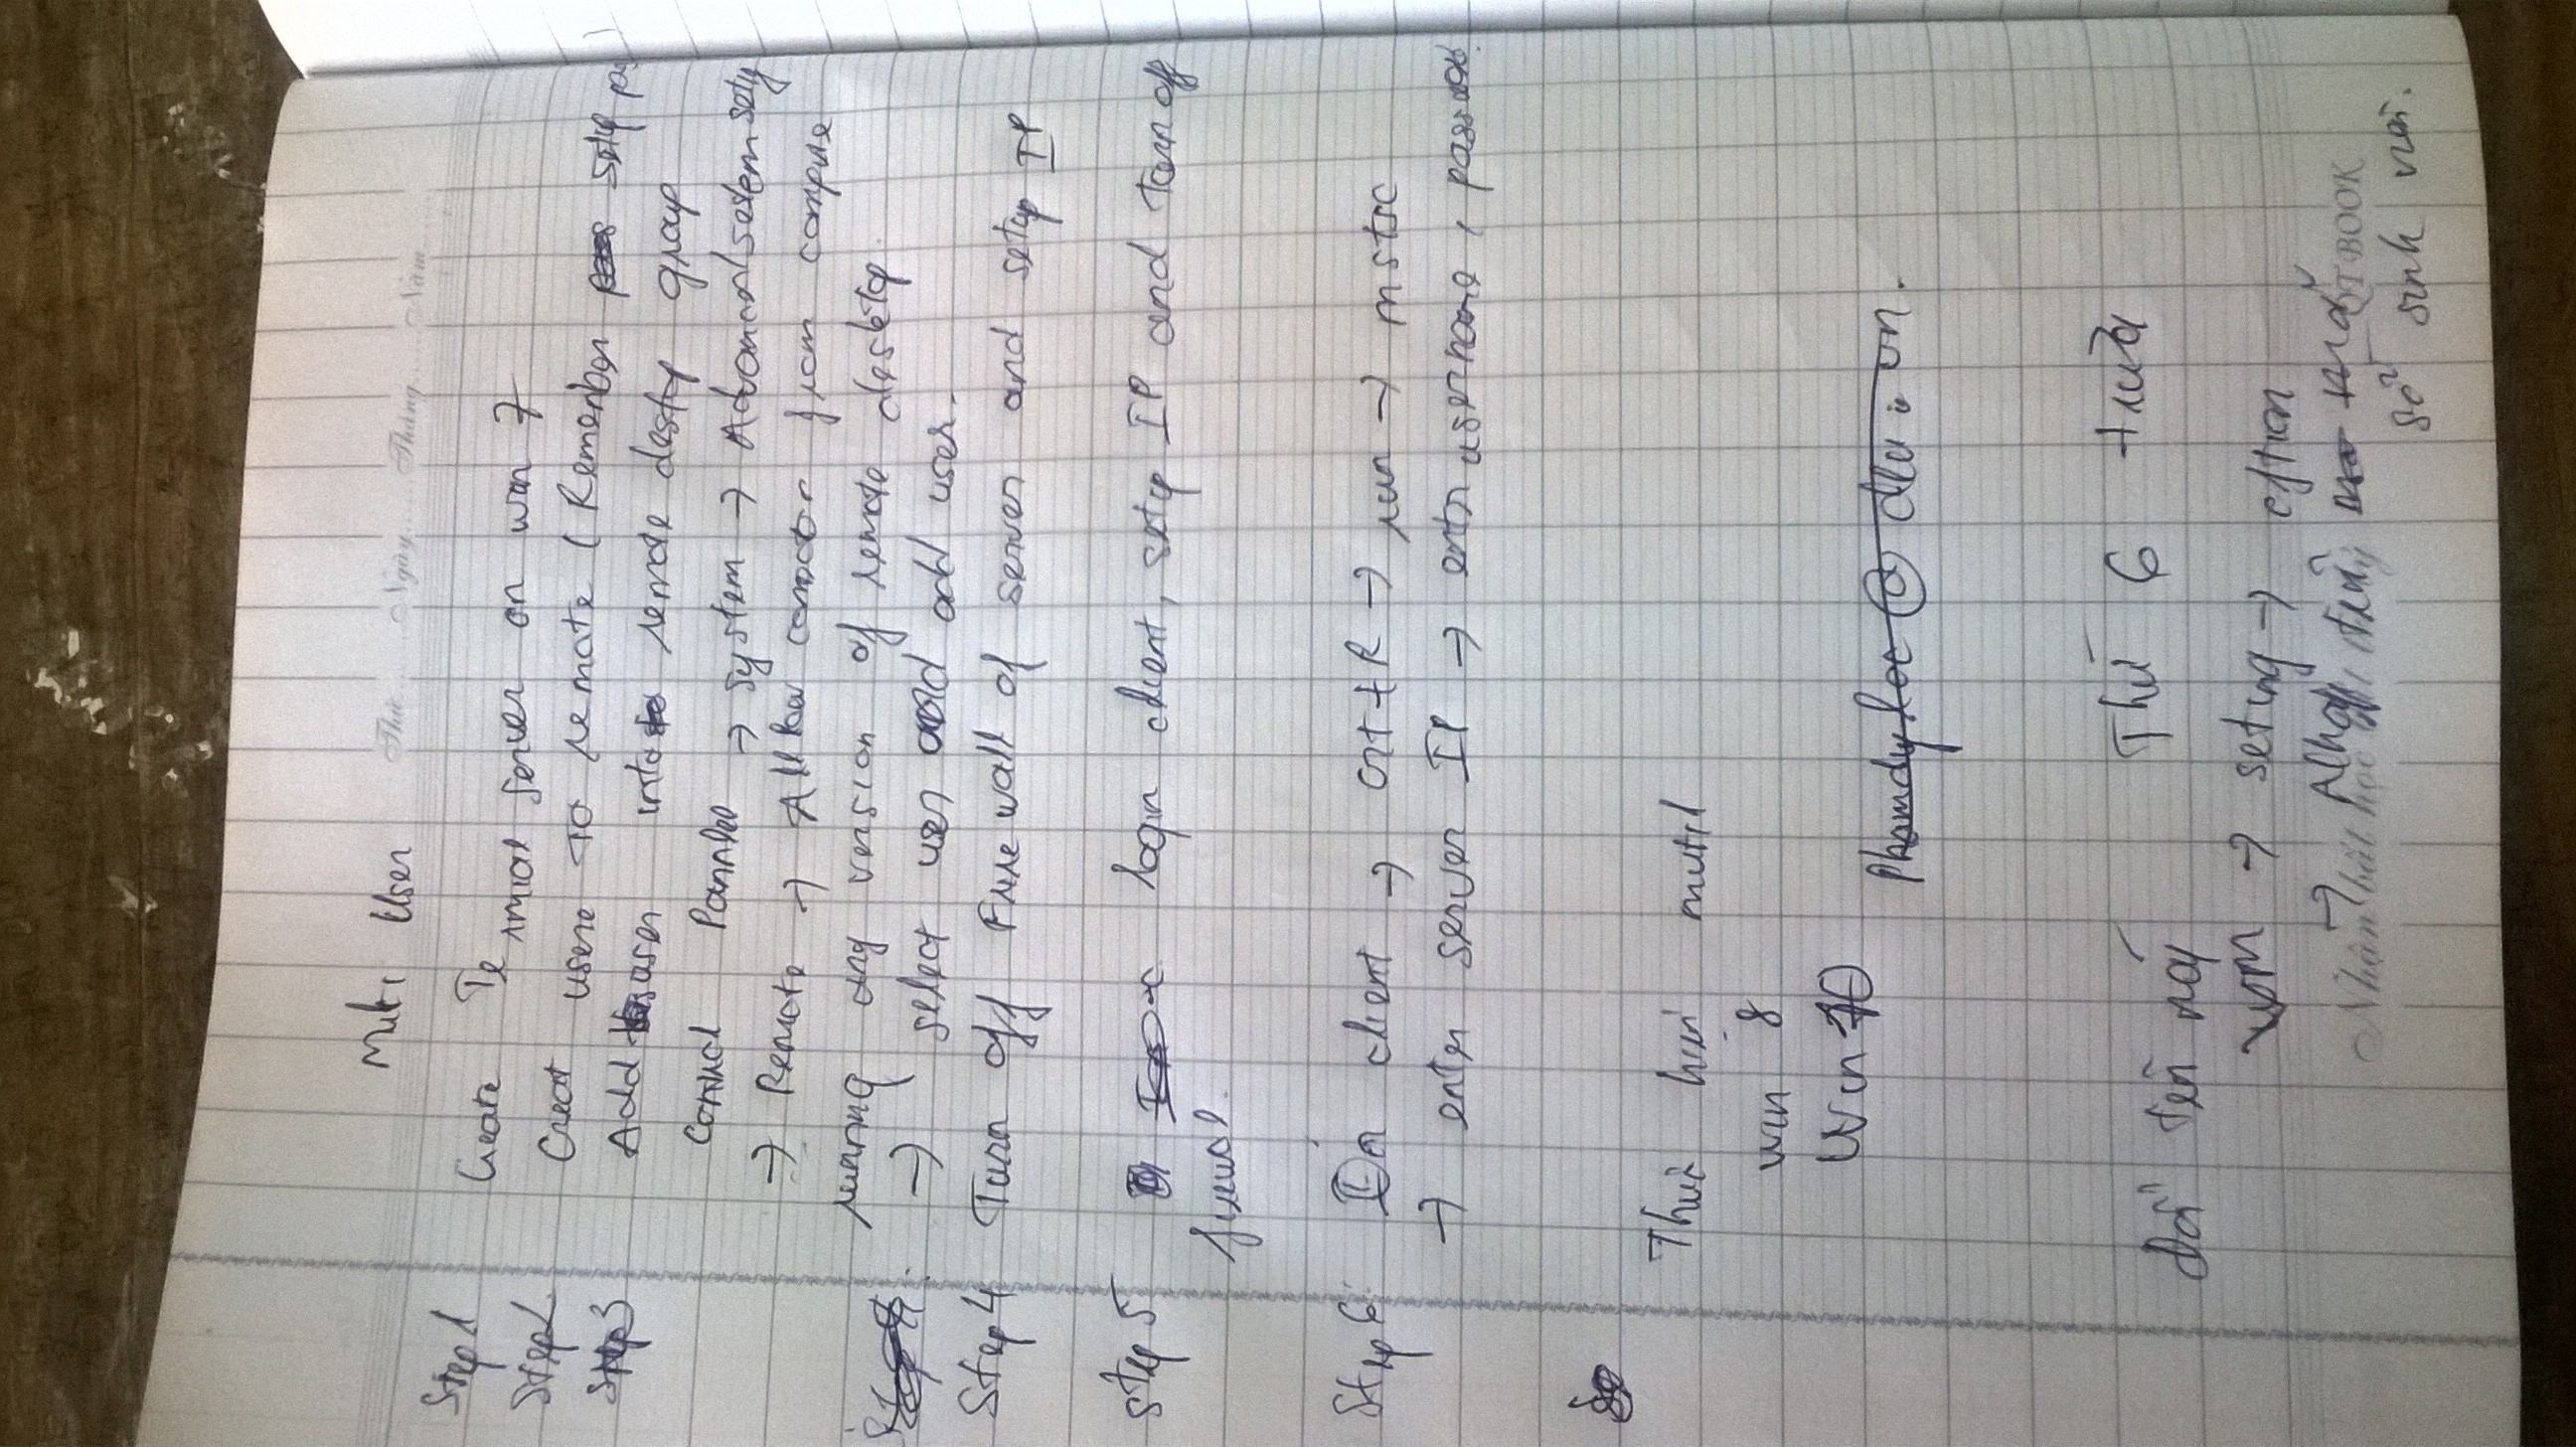 Multi User Thứ Ngày Tháng Năm
Step 1 Create Terminal server on win 7
Step 2 Creat usere To remote (Remember setup pas
Step 3 Add user into remote destop group
Control Pannel → System → Advancad sestem setup
→ Remote → Alllow from compure
running any version of remote desktop.
→ select user and add user.
Step 4 Turn off Firewall of server and setup IP
Step 5 login client, setup IP and Turn off
firewal.
Step 6: On client → Crt + R → run → mstsc
→ enter server IP → enter username,
Thực hiện
win 8
Win 10
Phamduyloc@dlu.vn.
Thứ 6 trưa
Đổi tên máy
→ seting → option
→ tên mã QT BOOK
số sinh viên.